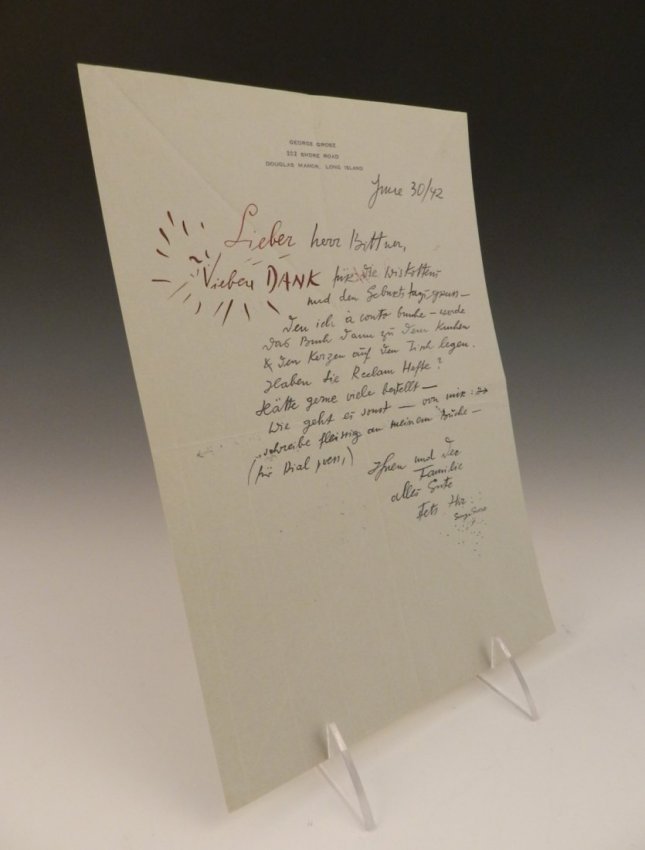 GEORGE GROSZ
202 SHORE ROAD
DOUGLAS MANOR, LONG ISLAND
June 30/42
Lieber herr Bittner,
Vielen DANK für die
und den Geburtstagsgruss —
den ich à conto buche — werde
das Buch dann zu dem Kuchen
& den Kerzen auf den Tisch legen.
Haben Sie Reclam Hefte?
Hätte gerne viele bestellt —
Wie geht es sonst — von mir:
schreibe fleissig an meinem Buche —
(für Dial press,)
Ihnen und der
Familie
alles Gute
stets Ihr
George Grosz